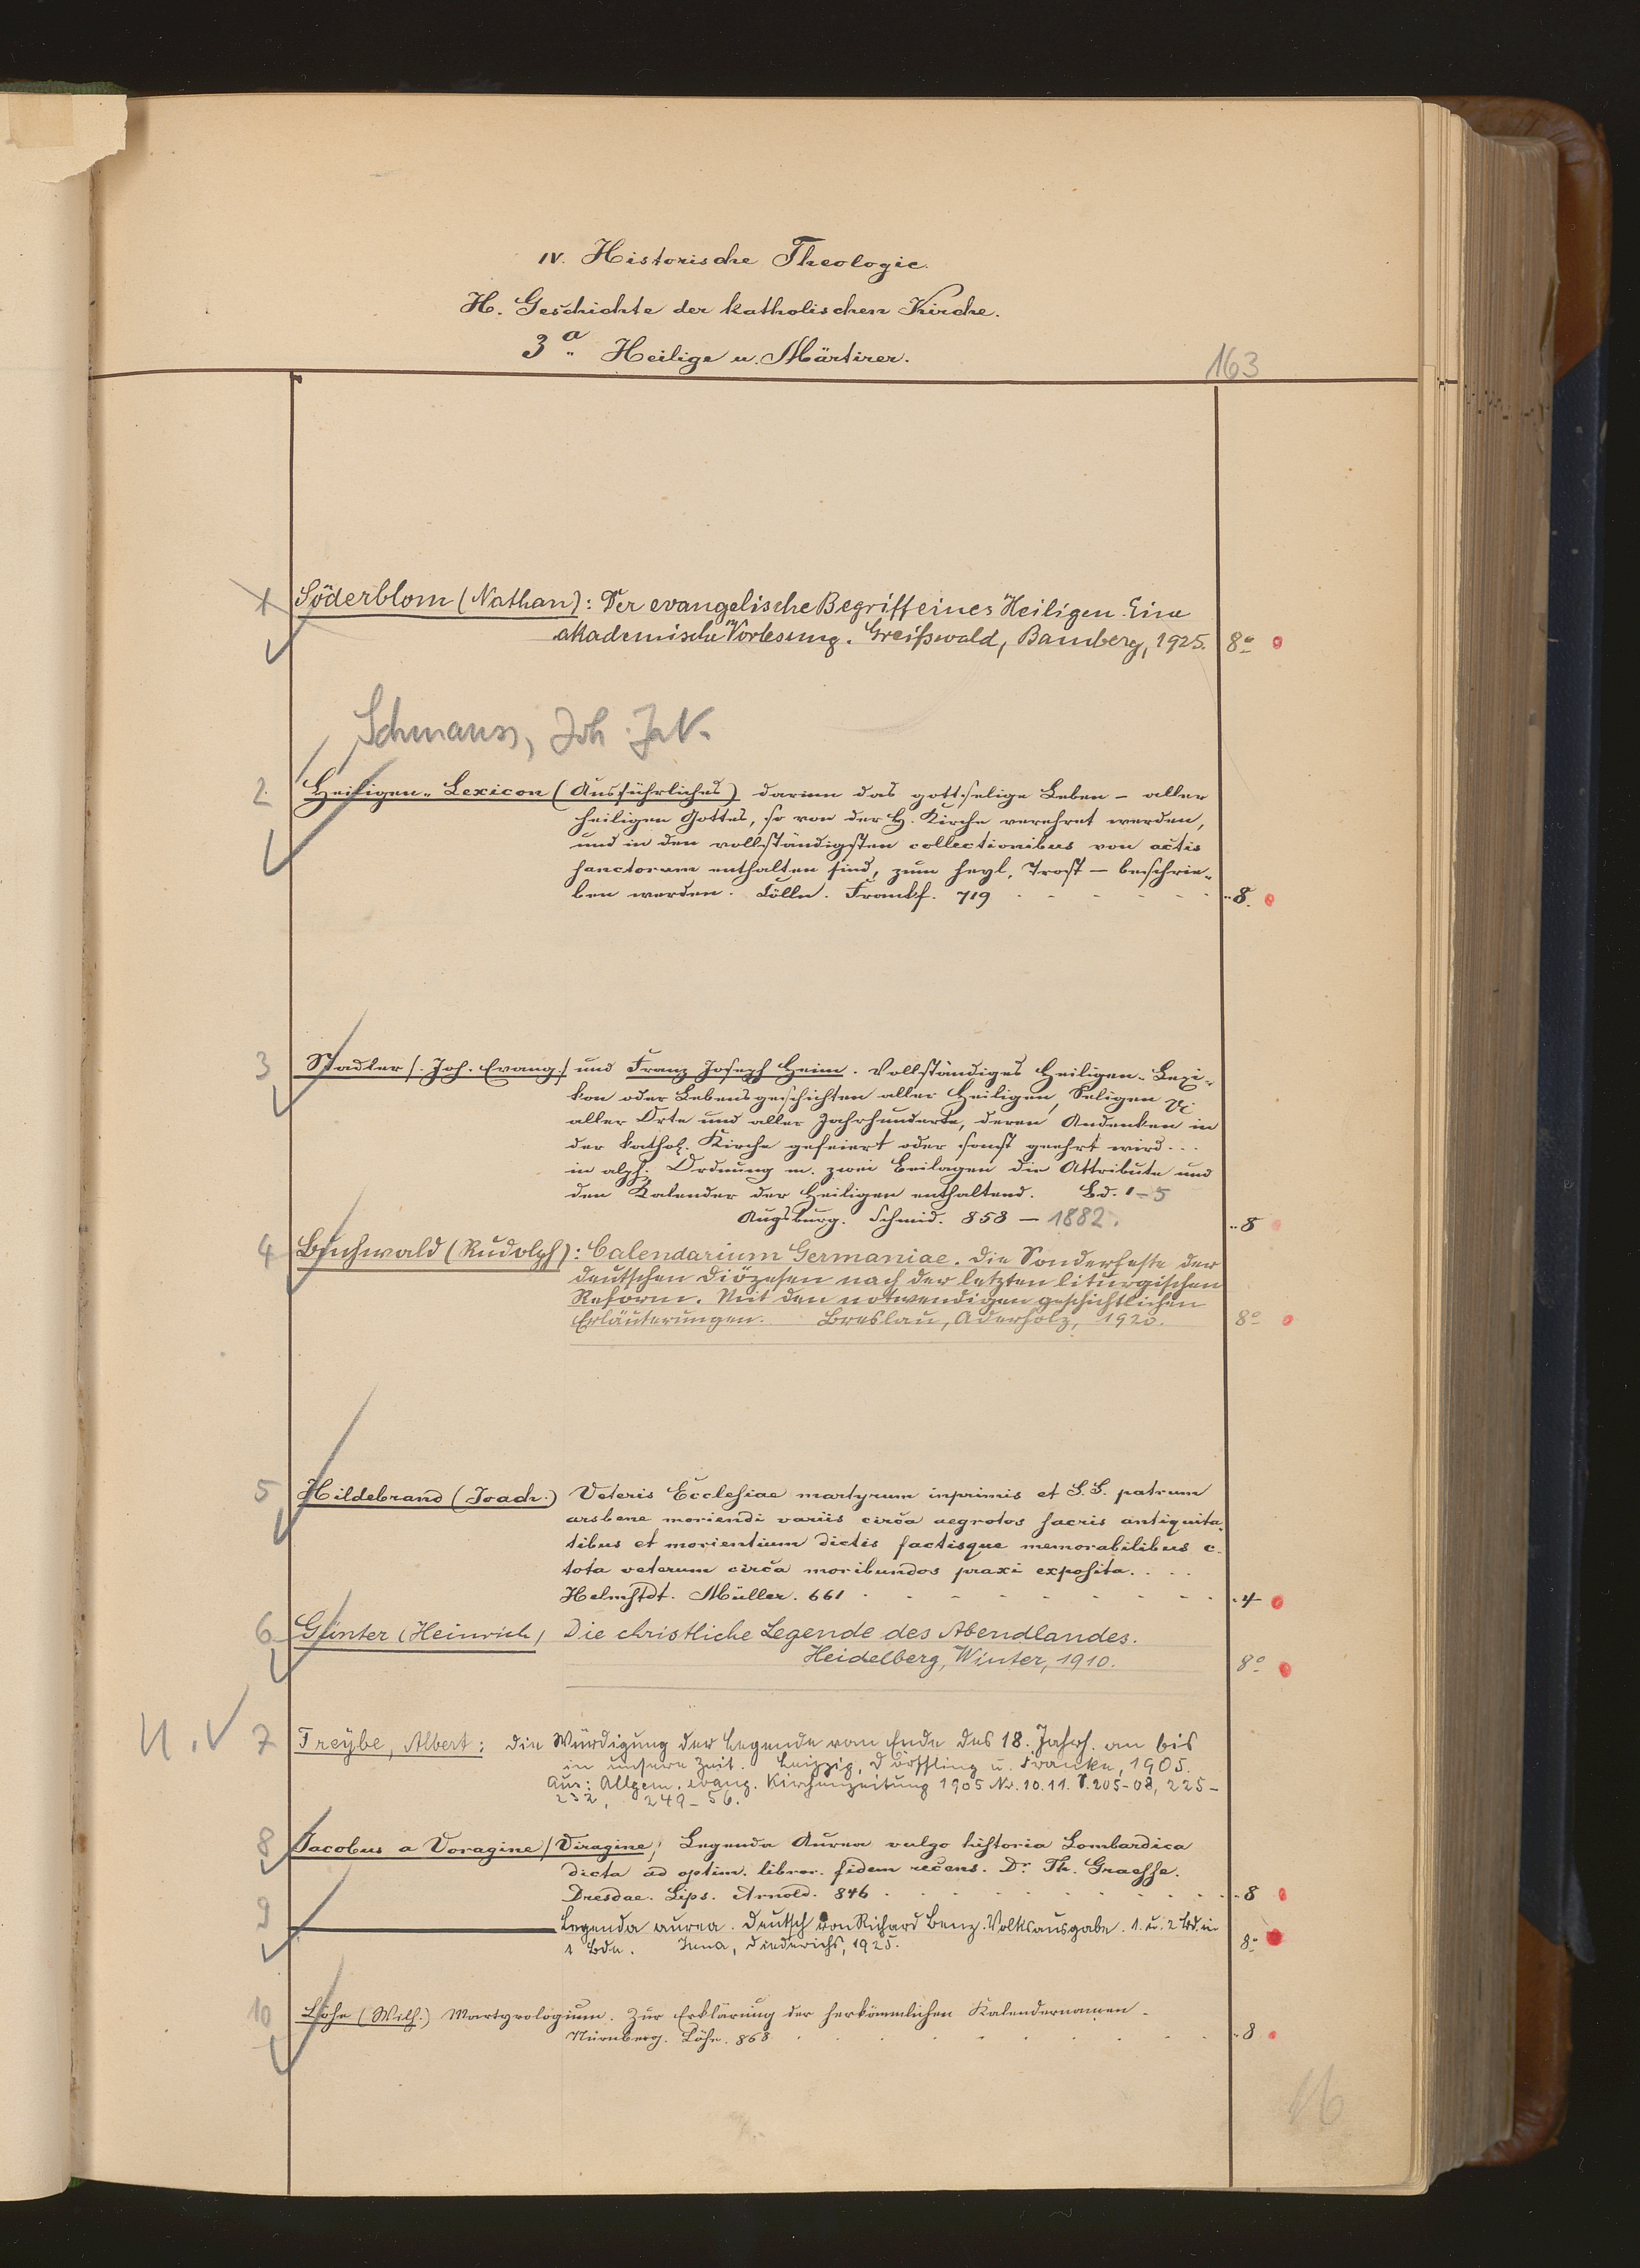 IV. Historische Theologie.
H. Geschichte der katholischen Kirche.
3a. Heilige u. Märtirer.
163
1 Söderblom (Nathan): Der evangelische Begriff eines Heiligen. Eine
akademische Vorlesung. Greifswald, Bamberg, 1925. 8°
Schmauss, Joh.
2 Heiligen-Lexicon (Ausführliches) darinn das gottselige Leben - aller
heiligen Gottes, so von der H. Kirche verehret werden,
und in den vollständigsten collectionibus von actis
sanctorum enthalten sind, zum heyl. Trost - beschrie-
ben werden. Cölln. Frankf. 719 8.
3 Stadler /. Joh. Evang./ und Franz Joseph Heim. Vollständiges Heiligen-Lexi-
kon oder Lebensgeschichten aller Heiligen, Seligen &
aller Orte und aller Jahrhunderte, deren Andenken in
der kathol. Kirche gefeiert oder sonst geehrt wird...
in alph. Ordnung m. zwei Beilagen die Attribute und
den Kalender der Heiligen enthaltend. Bd. 1-5
Augsburg. Schmid. 858 - 1882. 8
4 Buchwald (Rudolph): Calendarium Germaniae. Die Sonderfeste der
deutschen Diözesen nach der letzten liturgischen
Reform. Mit den notwendigen geschichtlichen
Erläuterungen. Breslau, Aderholz, 1920. 8°
5 Hildebrand (Joach.) Veteris Ecclesiae martyrum inprimis et S.S. patrum
ars bene moriendi variis circa aegrotos sacris antiquita-
tibus et morientium dictis factisque memorabilibus c.
tota veterum circa moribundos praxi exposita. . . .
Helmstdt. Müller. 661 4
6 Günter (Heinrich) Die christliche Legende des Abendlandes.
Heidelberg, Winter, 1910. 8°
7 Freybe, Albert: Die Würdigung der Legende vom Ende des 18. Jahrh. an bis
in unsere Zeit. Leipzig, Dörffling u. Franke, 1905.
Aus: Allgem. evang. Kirchenzeitung 1905 Nr. 10. 11. S. 205-08, 225-
232, 249-56.
8 Jacobus a Voragine / Viragine / Legenda Aurea vulgo historia Lombardica
dicta ad optim. libror. fidem recens. Dr. Th. Graesse.
Dresdae. Lips. Arnold. 846 8
9 Legenda aurea. Deutsch von Richard Benz. Volksausgabe. 1. u. 2 Bd. in
1 Bde. Jena, Diederichs, 1925. 8°
10 Löhe (Wilh.) Martyrologium. Zur Erklärung der herkömmlichen Kalendernamen.
Nürnberg. Löhe. 868 8
16